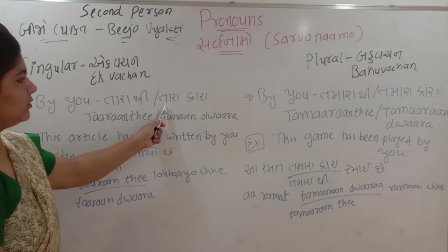 Second Person
Pronouns
બીજો પુરુષ - Beejo
સર્વનામો (Sarvanaamo)
Singular - એકવચન
Ek vachan
By you - તારાથી / તારા દ્વારા
Taaraanthee / Taaraan dwaara
This article has written by you
taaraan thee lakhaayo chhe
taaraan dwaara
Plural - બહુવચન
Bahuvachan
By You - તમારાથી / તમારા દ્વારા
Tamaaraanthee / Tamaaraan
dwaara
Ex. This game has been played by
you
આ રમત તમારા દ્વારા રમાઈ છે
તમારા થી
aa ramat tamaaraan dwaaraa chhe
tamaaraan thee